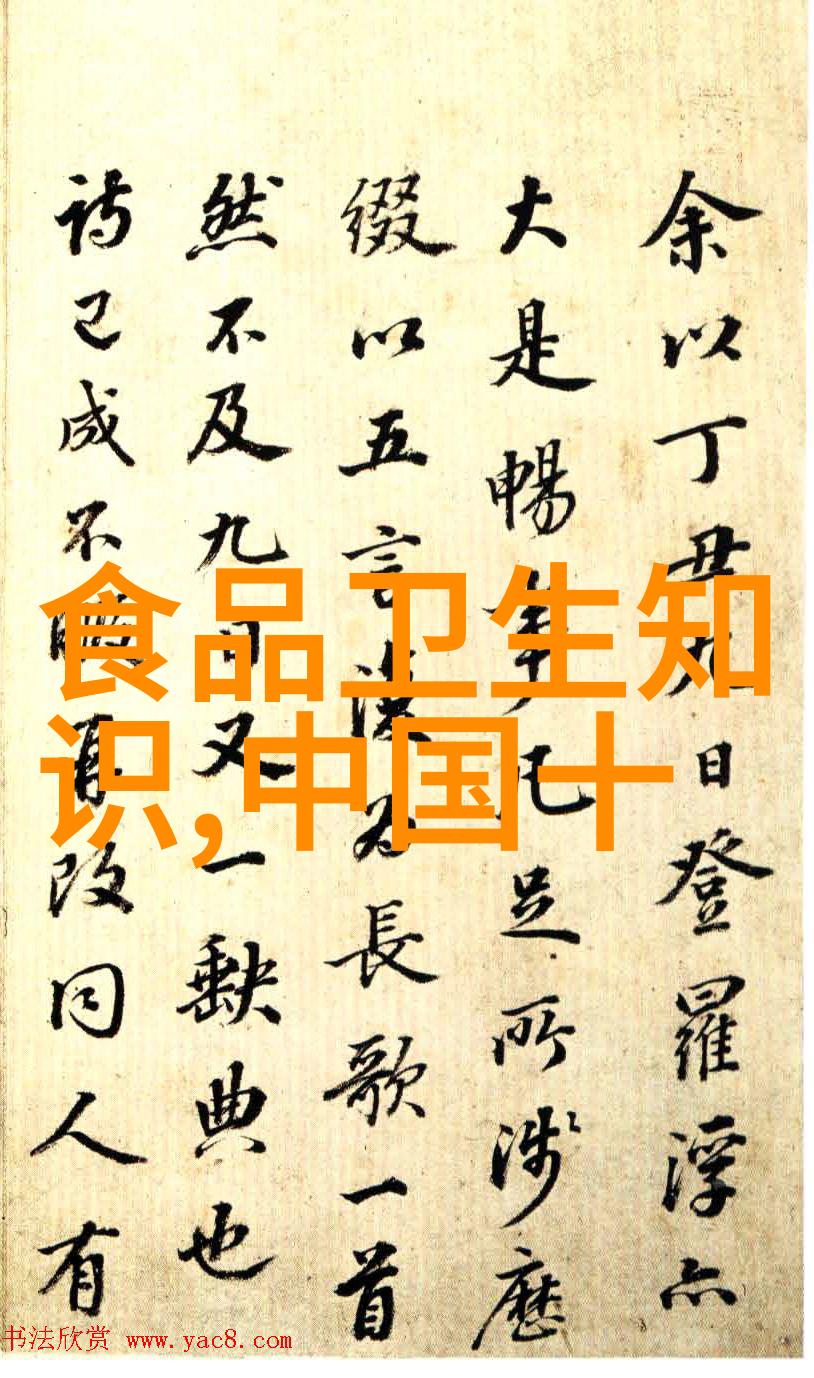 余以丁丑九日登羅浮亦
大是暢事凡足所涉歷
綴以五言為長歌一首
然不及九日又一缺典也
詩已成不暇再改同人有
食品卫生知
识,中国十
书法欣赏 www.yac8.com